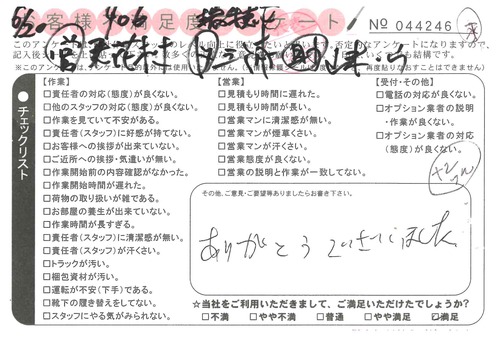 お客様満足度アンケート
No 044246
チェックリスト
【作業】
□責任者の対応(態度)が良くない。
□他のスタッフの対応(態度)が良くない。
□作業を見ていて不安がある。
□責任者(スタッフ)に好感が持てない。
□お客様への挨拶が出来ていない。
□ご近所への挨拶・気遣いが無い。
□作業開始前の内容確認がなかった。
□作業開始時間が遅れた。
□荷物の取り扱いが雑である。
□お部屋の養生が出来ていない。
□作業時間が長すぎる。
□責任者(スタッフ)に清潔感が無い。
□責任者(スタッフ)が汗くさい。
□トラックが汚い。
□梱包資材が汚い。
□運転が不安(下手)である。
□靴下の履き替えをしてない。
□スタッフにやる気がみられない。
【営業】
□見積もり時間に遅れた。
□見積もり時間が長い。
□営業マンに清潔感が無い。
□営業マンが煙草くさい。
□営業マンが汗くさい。
□営業態度が良くない。
□営業の説明と作業が一致してない。
【受付・その他】
□電話の対応が良くない。
□オプション業者の説明
・作業が良くない。
□オプション業者の対応
(態度)が良くない。
その他、ご意見・ご要望等ありましたらお書き下さい。
ありがとうございました
☆当社をご利用いただきまして、ご満足いただけたでしょうか?
□不満 □やや不満 □普通 □やや満足 ☑満足